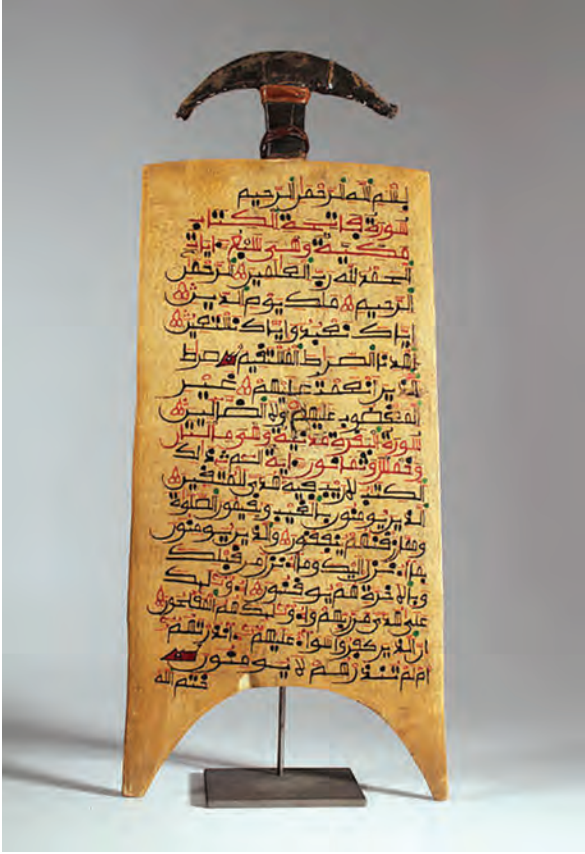 بسم الله الرحمن الرحيم
سورة فاتحة الكتاب
مكية وهي سبع ايات
الحمد لله رب العالمين الرحمن
الرحيم ملك يوم الدين
اياك نعبد واياك نستعين
اهدنا الصراط المستقيم صراط
الذين انعمت عليهم غير
المغضوب عليهم ولا الضالين
سورة البقرة مدنية وهي
وخمس وثمانون اية الم ذلك
الكتب لا ريب فيه هدى للمتقين
الذين يومنون بالغيب ويقيمون الصلوة
ومما رزقنهم ينفقون والذين يومنون
بما انزل اليك وما انزل من قبلك
وبالاخرة هم يوقنون اولئك
على هدى من ربهم واولئك هم المفلحون
ان الذين كفروا سواء عليهم ءانذرتهم
ام لم تنذرهم لا يومنون
ختم الله